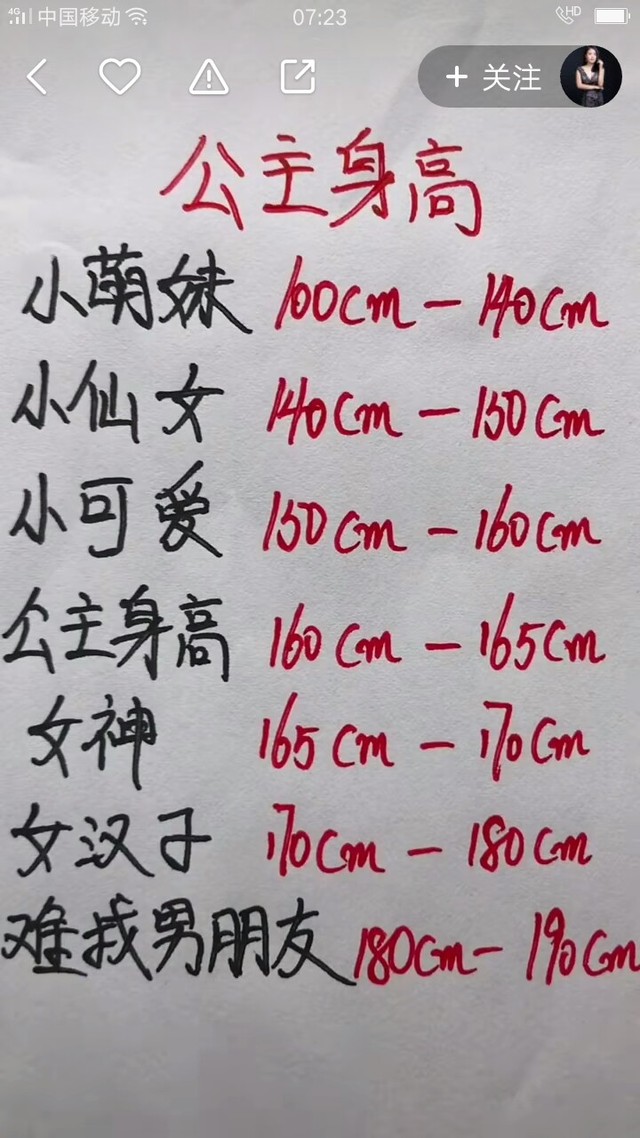 4G 中国移动 07:23 HD
+ 关注
公主身高
小萌妹 100cm - 140cm
小仙女 140cm - 150cm
小可爱 150cm - 160cm
公主身高 160cm - 165cm
女神 165cm - 170cm
女汉子 170cm - 180cm
难找男朋友 180cm - 190cm